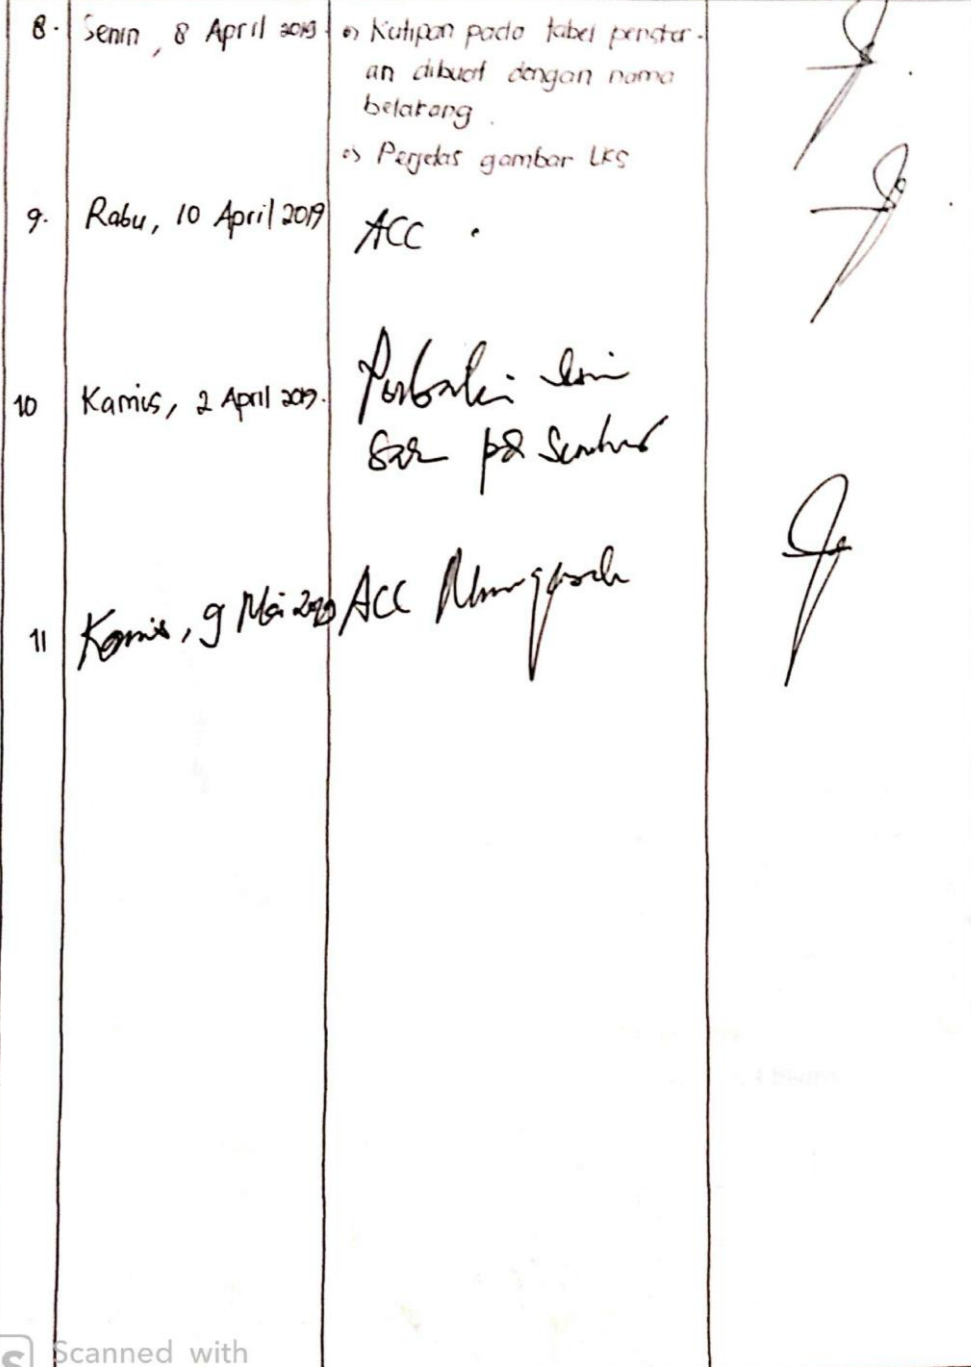 8. Senin, 8 April 2019 •) Kutipan pada tabel penctar-
an dibuat dengan nama
belakang.
•) Perjelas gambar LKS
9. Rabu, 10 April 2019 ACC
10 Kamis, 2 April 2019. Perbaiki
11 Kamis, 9 Mei 2019 ACC
Scanned with